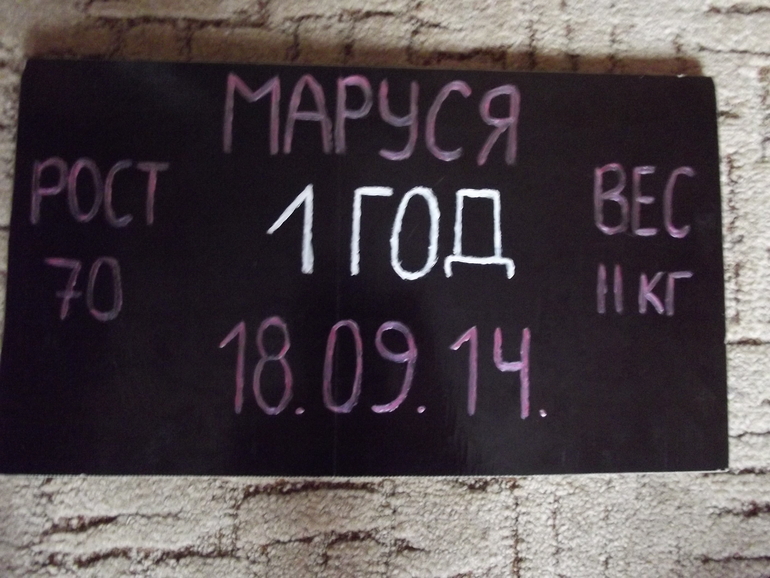 МАРУСЯ
РОСТ
70
1 ГОД
ВЕС
11 КГ
18.09.14.